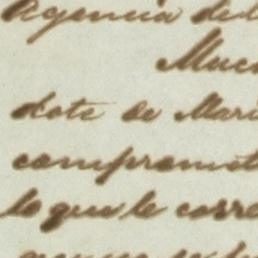 Agencia del
Much
dote de Mari
compromet
lo que le corre